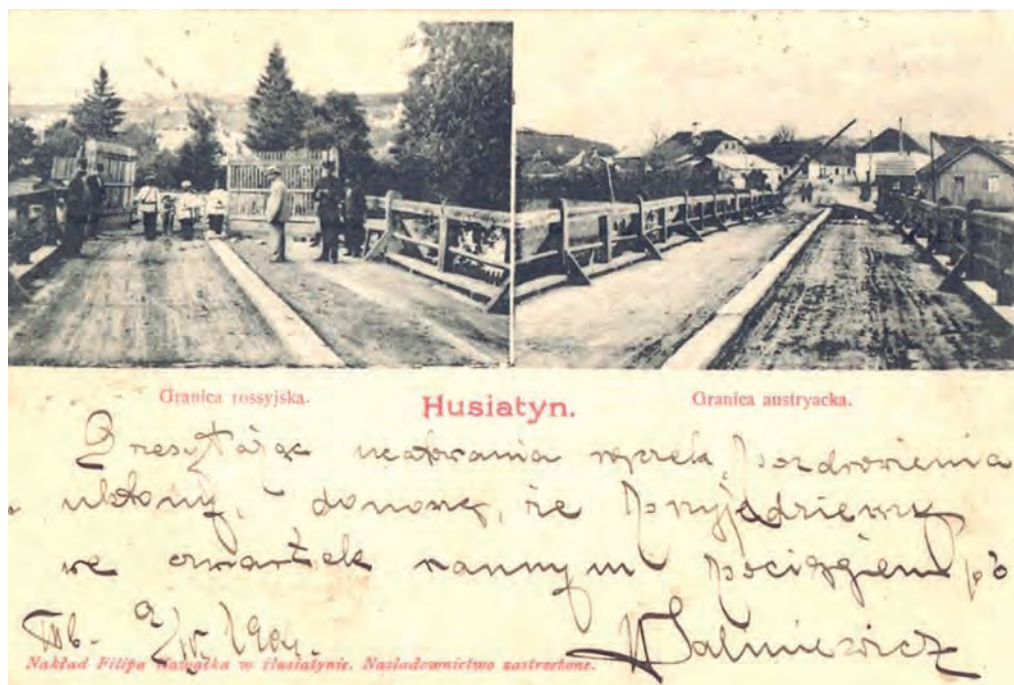 Granica rossyjska.
Husiatyn.
Granica austryacka.
Przesyłając ucałowania rączek, pozdrowienia
i ukłony, donoszę, że przyjedziemy
we czwartek rannym pociągiem
9/IV. 1904.
Nakład Filipa w Husiatynie. Naśladownictwo zastrzeżone.